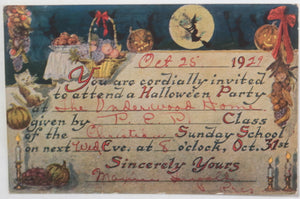 Oct 25 1929
You are cordially invited
to attend a Halloween Party
at The Underwood Home
given by P.E.P. Class
of the Christian Sunday School
on next Wed Eve. at 8 o'clock, Oct. 31st
Sincerely Yours
Pres